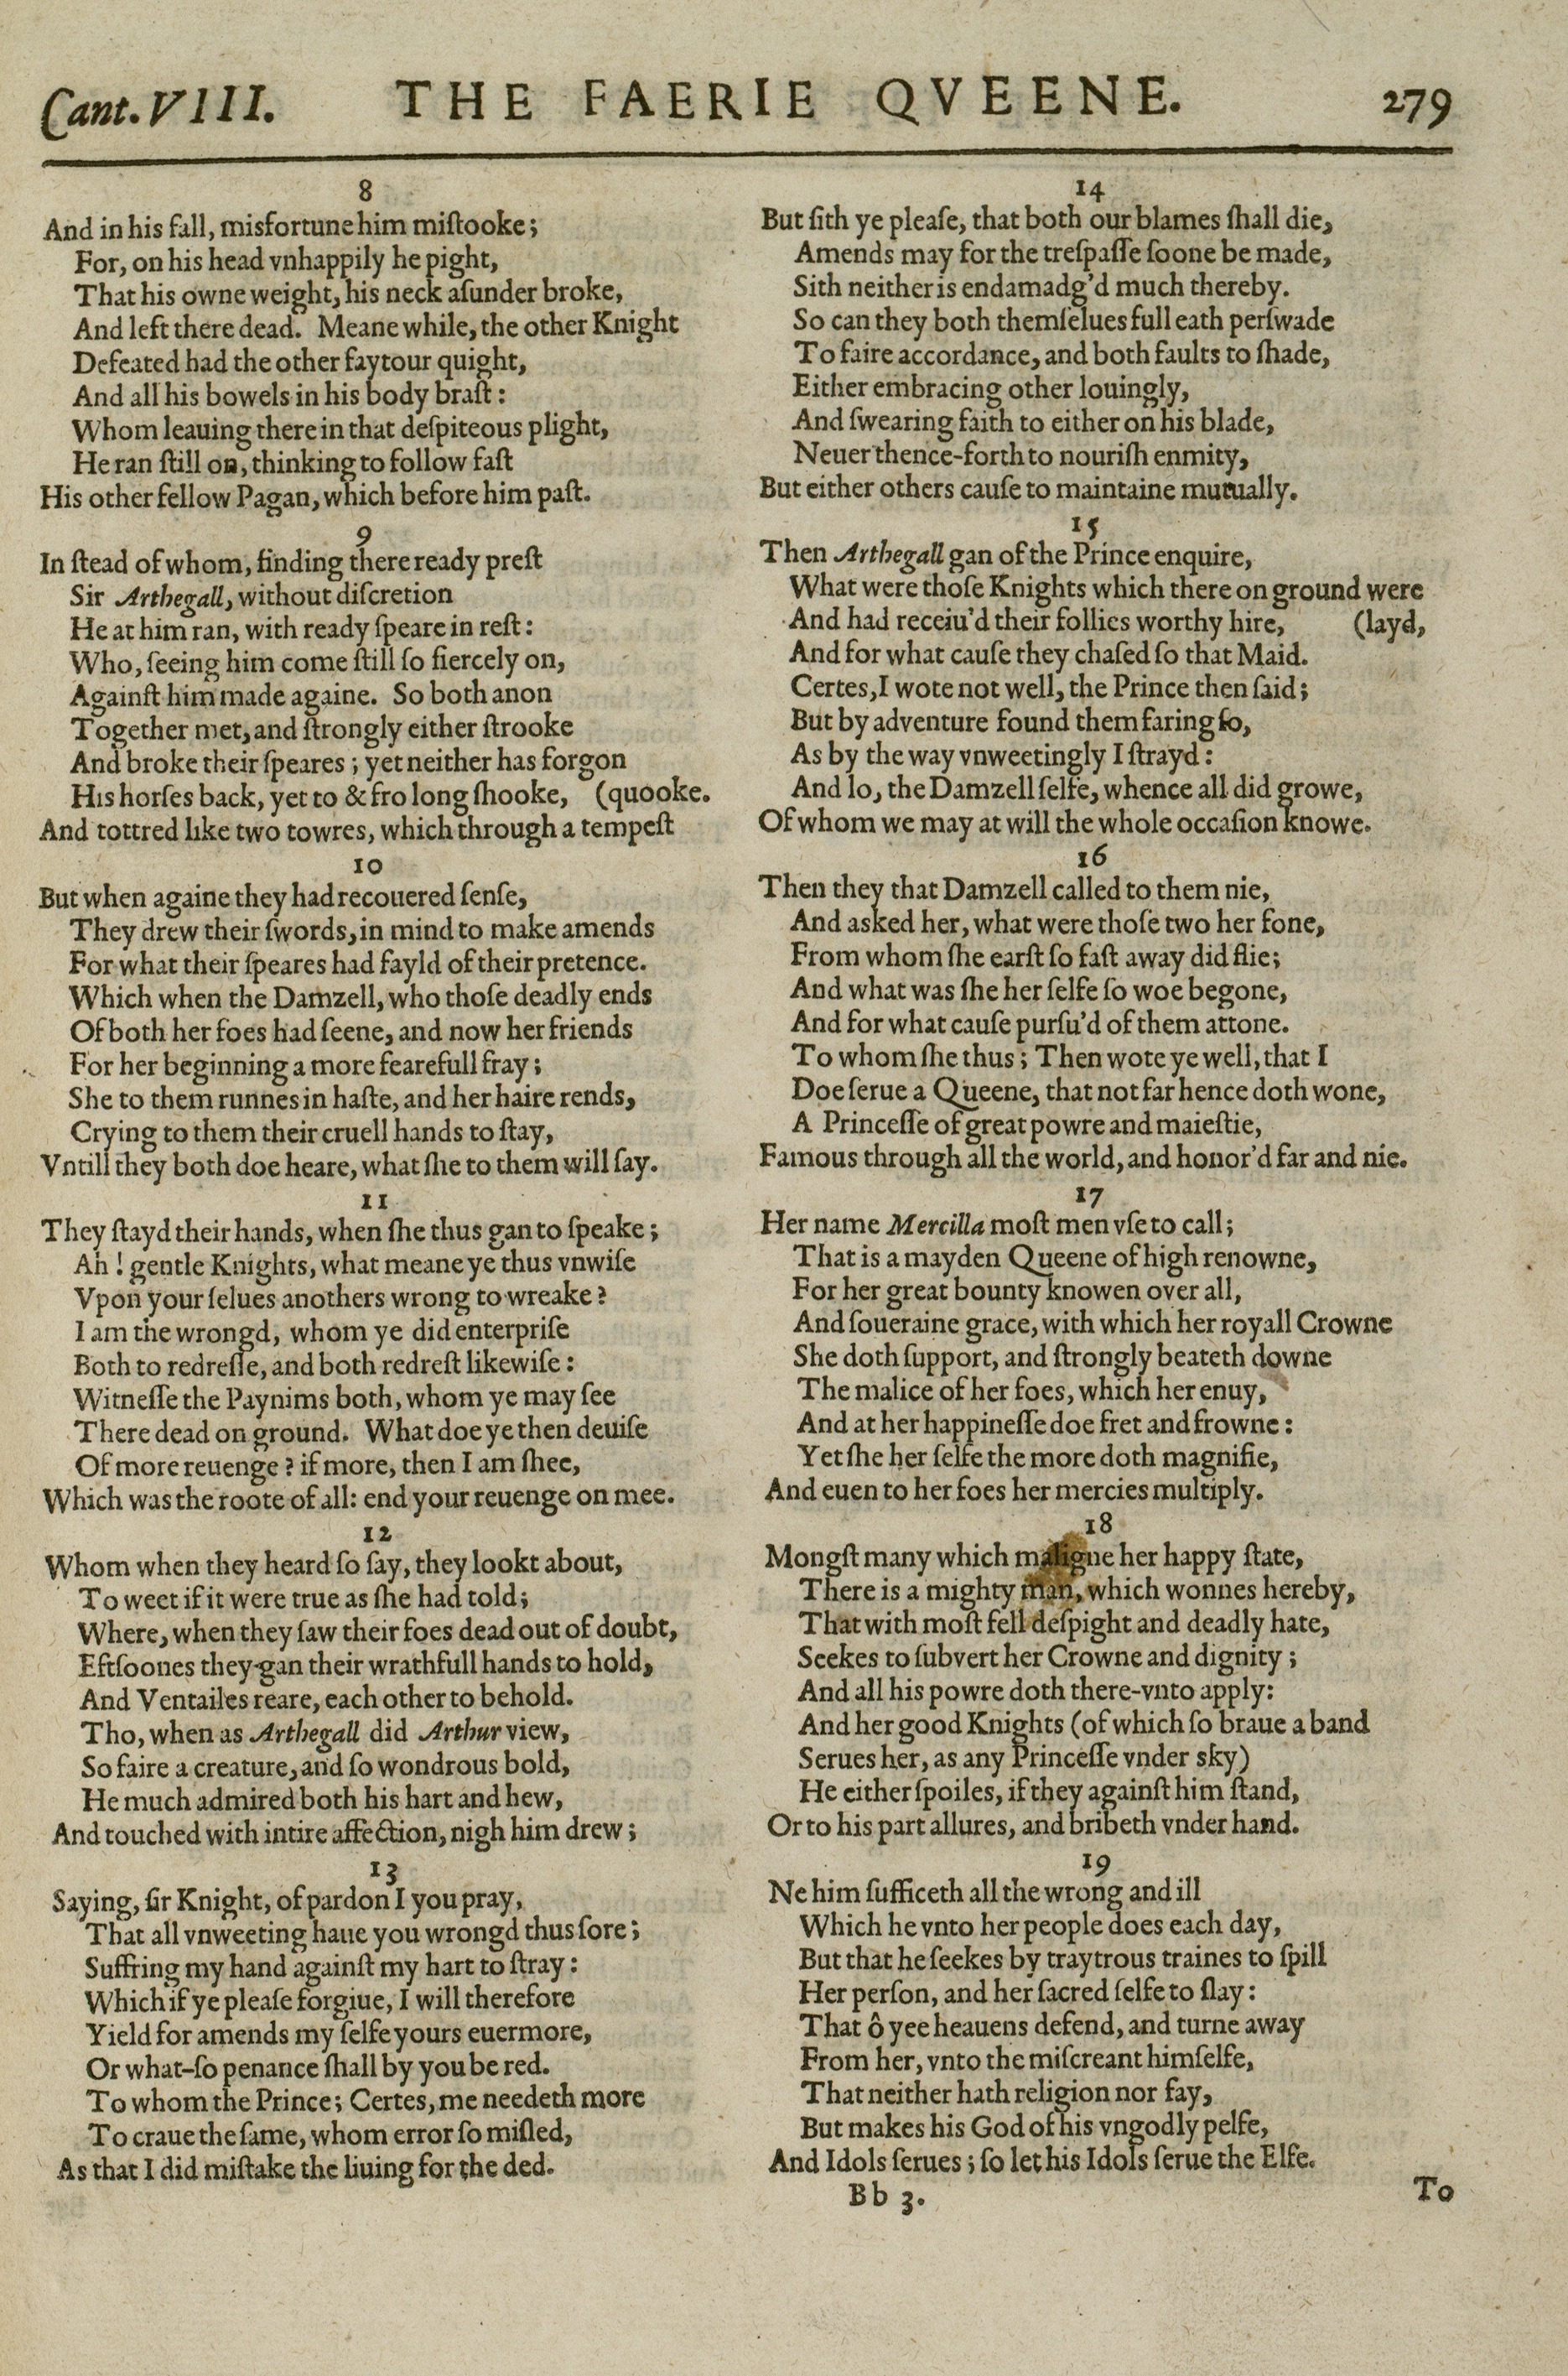 Cant. VIII. THE FAERIE QVEENE. 279
8
And in his fall, misfortune him miſtooke;
For, on his head vnhappily he pight,
That his owne weight, his neck aſunder broke,
And left there dead. Meane while, the other Knight
Defeated had the other faytour quight,
And all his bowels in his body braſt:
Whom leauing there in that deſpiteous plight,
He ran ſtill on, thinking to follow faſt
His other fellow Pagan, which before him paſt.
9
In ſtead of whom, finding there ready preſt
Sir Arthegall, without diſcretion
He at him ran, with ready ſpeare in reſt:
Who, ſeeing him come ſtill ſo fiercely on,
Againſt him made againe. So both anon
Together met, and ſtrongly either ſtrooke
And broke their ſpeares; yet neither has forgon
His horſes back, yet to & fro long ſhooke, (quooke.
And tottred like two towres, which through a tempeſt
10
But when againe they had recouered ſenſe,
They drew their ſwords, in mind to make amends
For what their ſpeares had fayld of their pretence.
Which when the Damzell, who thoſe deadly ends
Of both her foes had ſeene, and now her friends
For her beginning a more fearefull fray;
She to them runnes in haſte, and her haire rends,
Crying to them their cruell hands to ſtay,
Vntill they both doe heare, what ſhe to them will ſay.
11
They ſtayd their hands, when ſhe thus gan to ſpeake;
Ah! gentle Knights, what meane ye thus vnwiſe
Vpon your ſelues anothers wrong to wreake?
I am the wrongd, whom ye did enterpriſe
Both to redreſſe, and both redreſt likewiſe:
Witneſſe the Paynims both, whom ye may ſee
There dead on ground. What doe ye then deuiſe
Of more reuenge? if more, then I am ſhee,
Which was the roote of all: end your reuenge on mee.
12
Whom when they heard ſo ſay, they lookt about,
To weet if it were true as ſhe had told;
Where, when they ſaw their foes dead out of doubt,
Eftſoones they gan their wrathfull hands to hold,
And Ventailes reare, each other to behold.
Tho, when as Arthegall did Arthur view,
So faire a creature, and ſo wondrous bold,
He much admired both his hart and hew,
And touched with intire affection, nigh him drew;
13
Saying, ſir Knight, of pardon I you pray,
That all vnweeting haue you wrongd thus ſore;
Suffring my hand againſt my hart to ſtray:
Which if ye pleaſe forgiue, I will therefore
Yield for amends my ſelfe yours euermore,
Or what-ſo penance ſhall by you be red.
To whom the Prince; Certes, me needeth more
To craue the ſame, whom error ſo miſled,
As that I did miſtake the liuing for the ded.
14
But ſith ye pleaſe, that both our blames ſhall die,
Amends may for the treſpaſſe ſoone be made,
Sith neither is endamadg'd much thereby.
So can they both themſelues full eath perſwade
To faire accordance, and both faults to ſhade,
Either embracing other louingly,
And ſwearing faith to either on his blade,
Neuer thence-forth to nouriſh enmity,
But either others cauſe to maintaine mutually.
15
Then Arthegall gan of the Prince enquire,
What were thoſe Knights which there on ground were
And had receiu'd their follies worthy hire, (layd,
And for what cauſe they chaſed ſo that Maid.
Certes, I wote not well, the Prince then ſaid;
But by adventure found them faring ſo,
As by the way vnweetingly I ſtrayd:
And lo, the Damzell ſelfe, whence all did growe,
Of whom we may at will the whole occaſion knowe.
16
Then they that Damzell called to them nie,
And asked her, what were thoſe two her fone,
From whom ſhe earſt ſo faſt away did flie;
And what was ſhe her ſelfe ſo woe begone,
And for what cauſe purſu'd of them attone.
To whom ſhe thus; Then wote ye well, that I
Doe ſerue a Queene, that not far hence doth wone,
A Princeſſe of great powre and maieſtie,
Famous through all the world, and honor'd far and nie.
17
Her name Mercilla moſt men vſe to call;
That is a mayden Queene of high renowne,
For her great bounty knowen over all,
And ſoueraine grace, with which her royall Crowne
She doth ſupport, and ſtrongly beateth downe
The malice of her foes, which her enuy,
And at her happineſſe doe fret and frowne:
Yet ſhe her ſelfe the more doth magnifie,
And euen to her foes her mercies multiply.
18
Mongſt many which maligne her happy ſtate,
There is a mighty man, which wonnes hereby,
That with moſt fell deſpight and deadly hate,
Seekes to ſubvert her Crowne and dignity;
And all his powre doth there-vnto apply:
And her good Knights (of which ſo braue a band
Serues her, as any Princeſſe vnder sky)
He either ſpoiles, if they againſt him ſtand,
Or to his part allures, and bribeth vnder hand.
19
Ne him ſufficeth all the wrong and ill
Which he vnto her people does each day,
But that he ſeekes by traytrous traines to ſpill
Her perſon, and her ſacred ſelfe to ſlay:
That ô yee heauens defend, and turne away
From her, vnto the miſcreant himſelfe,
That neither hath religion nor fay,
But makes his God of his vngodly pelfe,
And Idols ſerues; ſo let his Idols ſerue the Elfe.
Bb 3. To